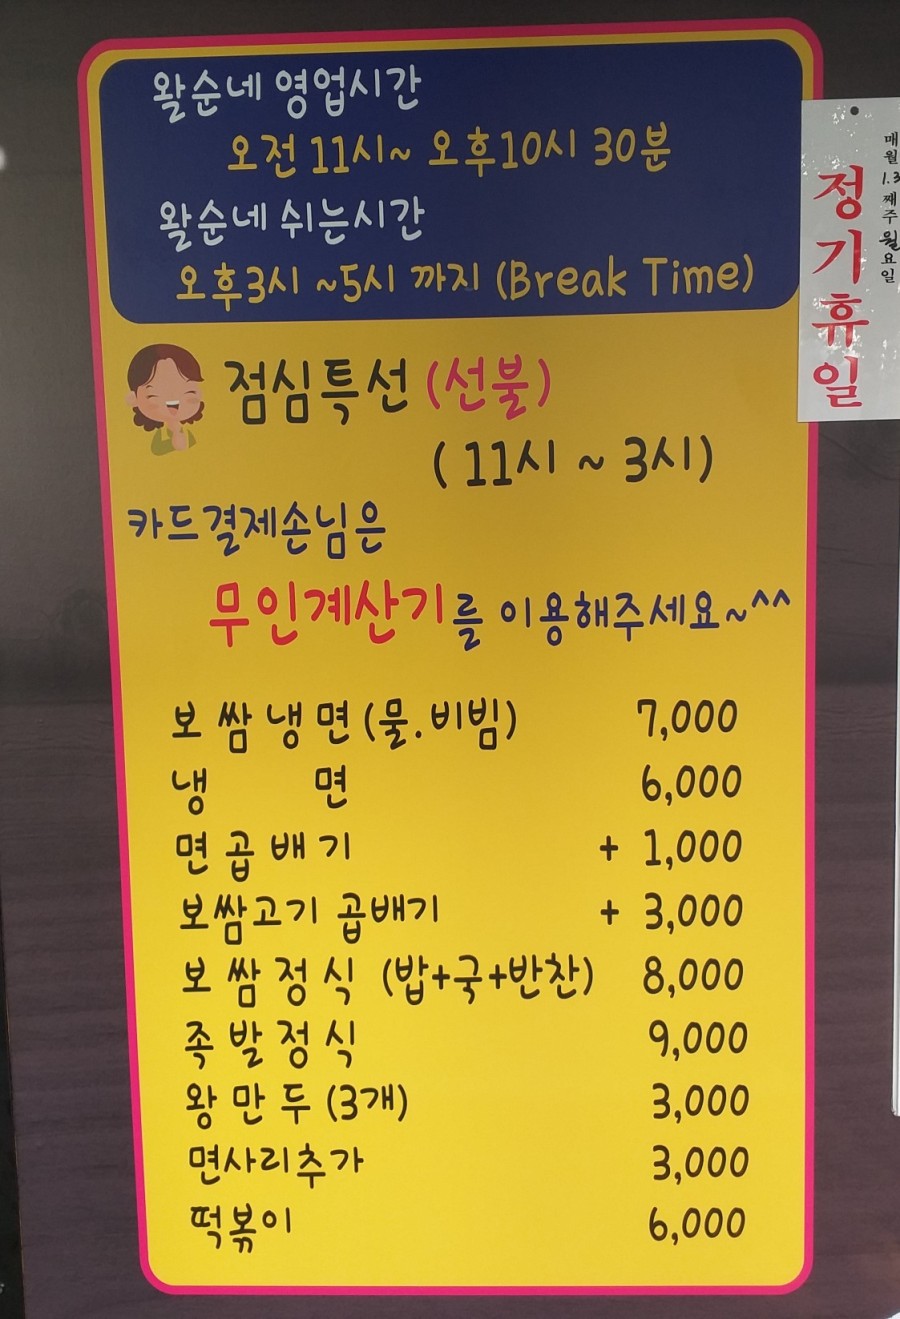 왈순네 영업시간
오전 11시~ 오후10시 30분
왈순네 쉬는시간
오후3시 ~5시 까지 (Break Time)
매월 1.3째주 월요일
정기휴일
점심특선 (선불)
(11시 ~ 3시)
카드결제손님은
무인계산기를 이용해주세요~^^
보쌈냉면(물.비빔) 7,000
냉 면 6,000
면곱배기 + 1,000
보쌈고기 곱배기 + 3,000
보쌈정식 (밥+국+반찬) 8,000
족발정식 9,000
왕만두(3개) 3,000
면사리추가 3,000
떡볶이 6,000